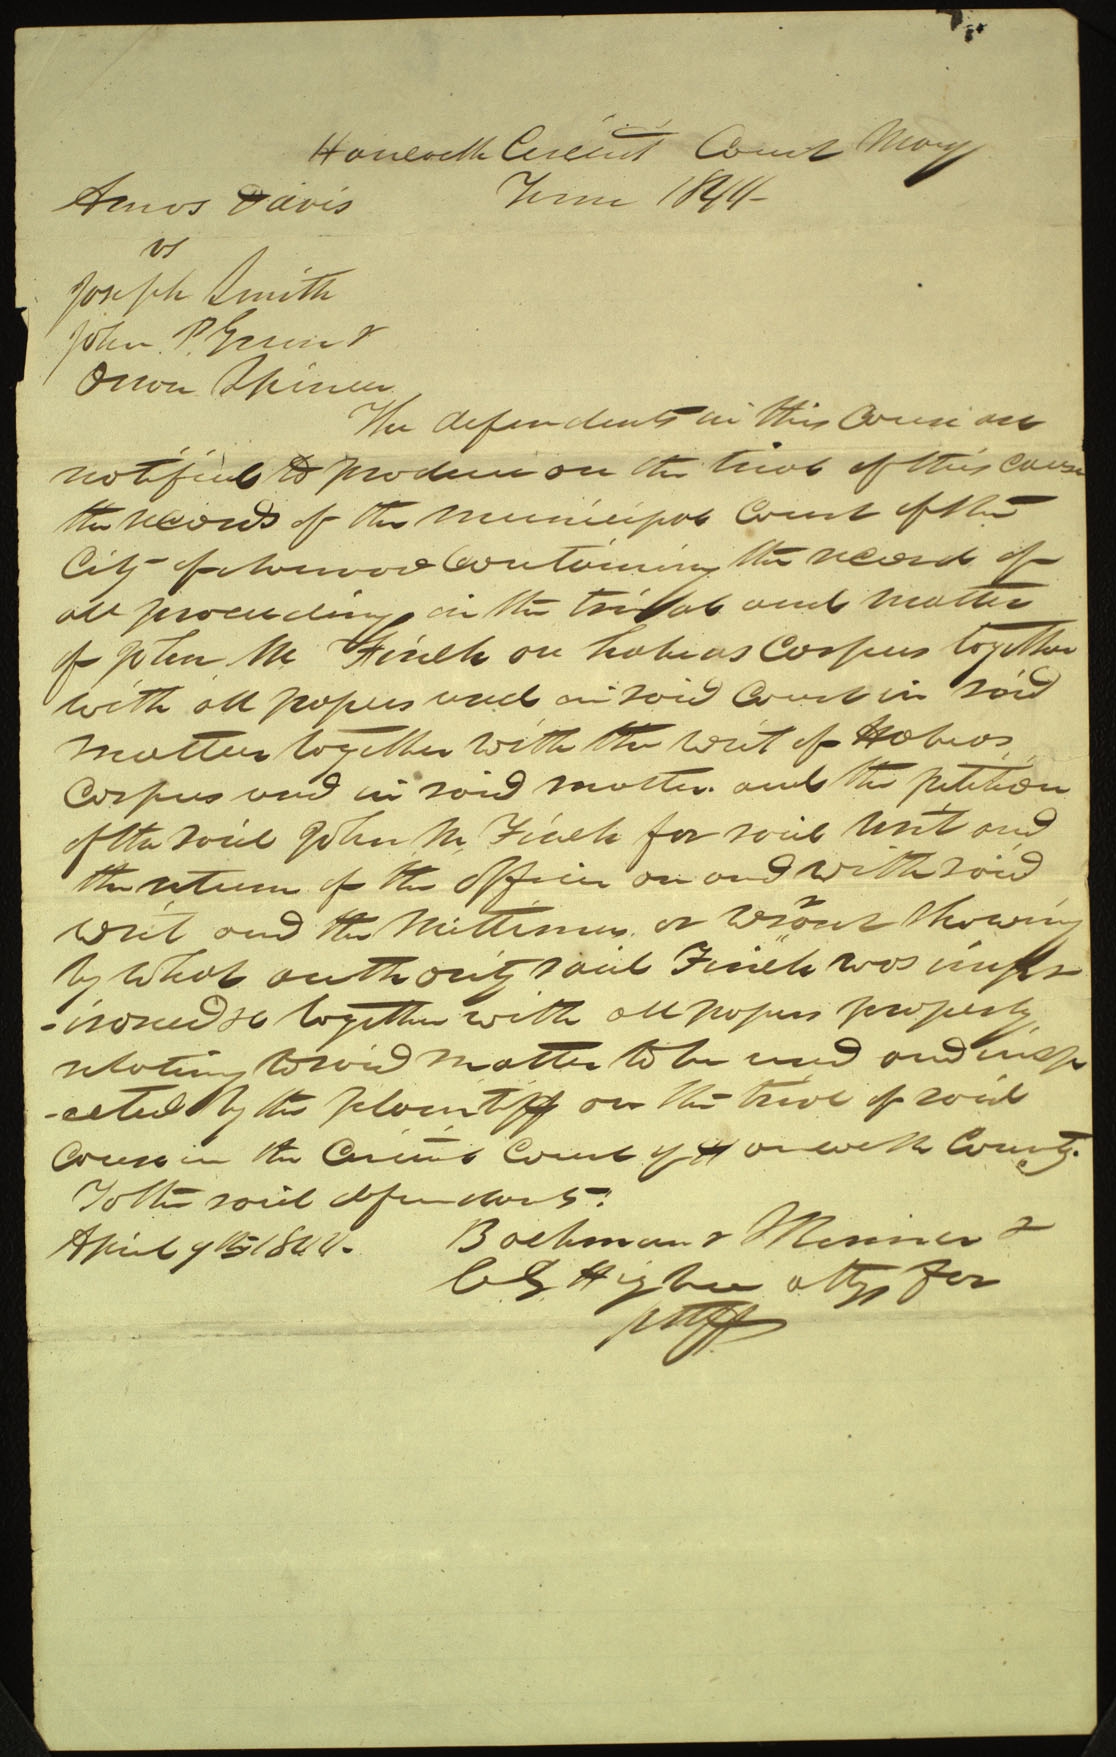 Hancock Circuit Court May
Term 1844
Amos Davis
vs
Joseph Smith
John P. Green &
Orson Spencer
The defendents in this Cause are
notified to produce on the trial of this cause
the records of the Municipal Court of the
City of Nauvoo Containing the record of
all proceedings in the trial and matter
of John M Finch on habeas Corpus together
with all papers used in said Court in said
matter together with the writ of Habeas
Corpus used in said matter. and the petition
of the said John M. Finch for said writ and
the return of the Officer on and with said
writ and the Mittimus or warant showing
by what authority said Finch was impr
-isoned &c together with all papers properly
relating to said matter to be used and insp
-ected by the plaintiff on the trial of said
Cause in the Circuit Court of Hancock County.
To the said defendants.
April 9th 1844. Bachman & Skinner &
C L Higbee attys for
pltff